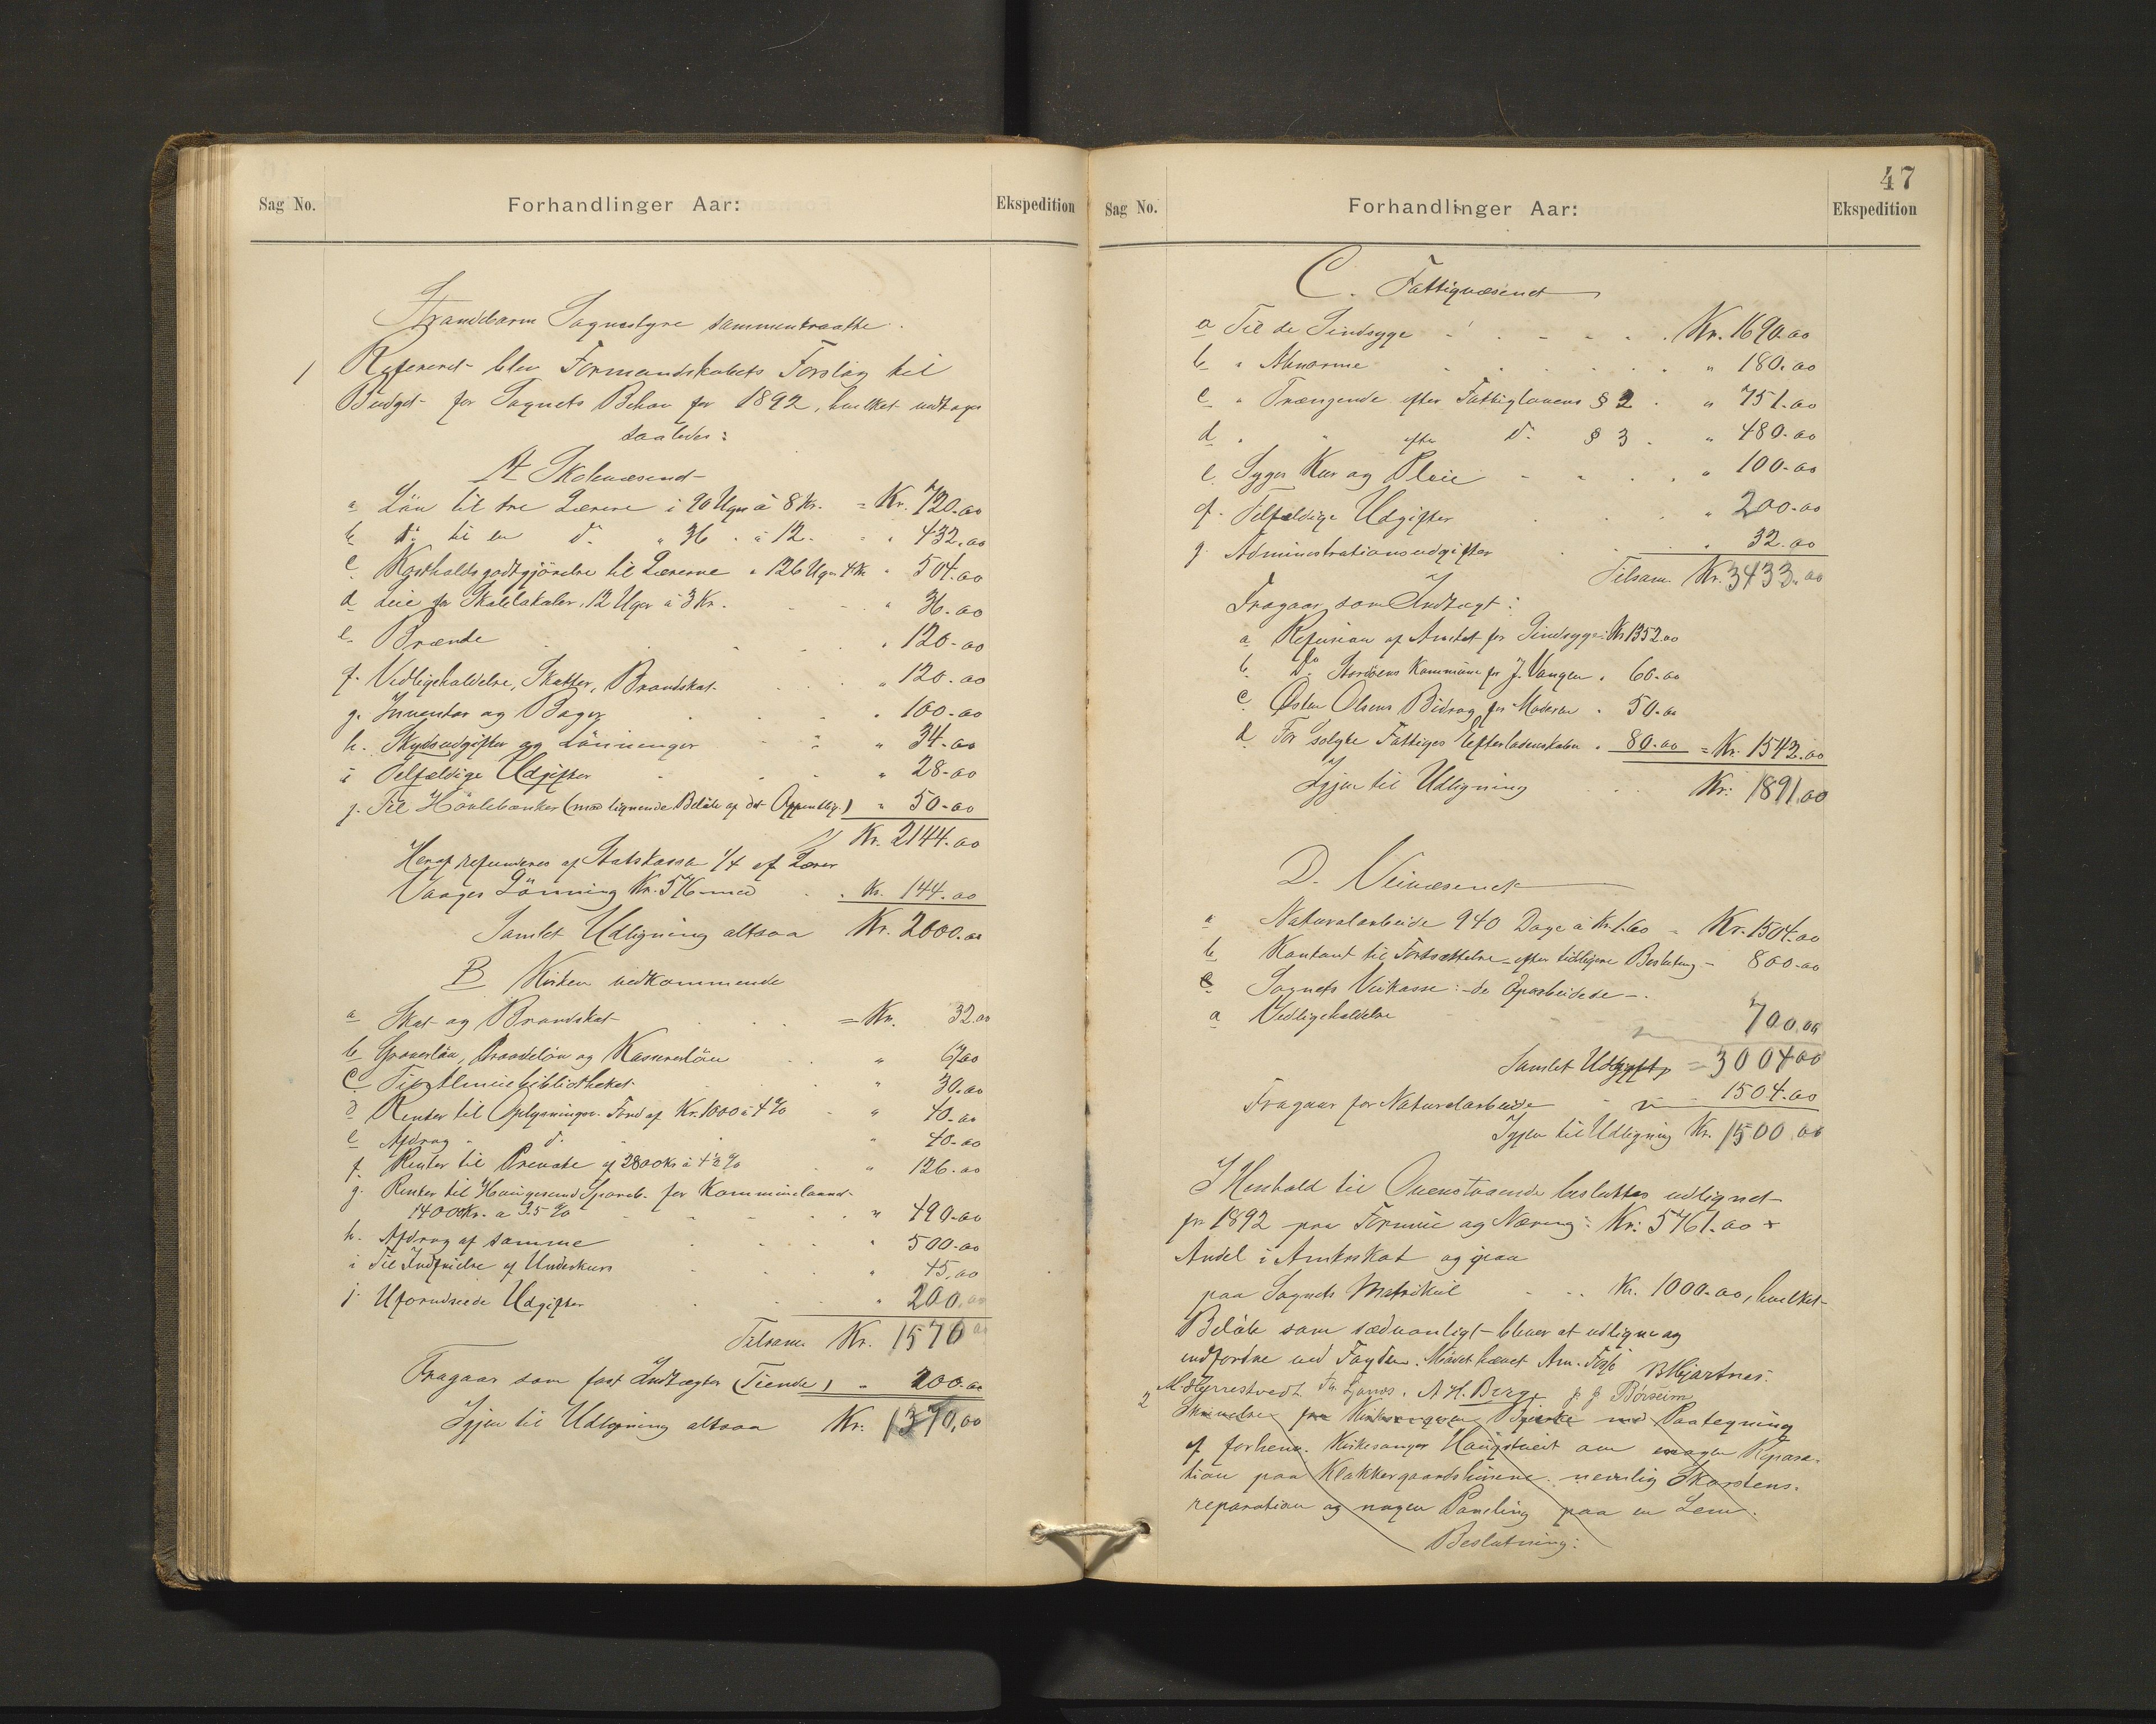 Sag No.
Forhandlinger Aar:
Ekspedition
Strandebarm Sognestyre sammentraadte.
1 Refereret blev Formandskabets Forslag til
Budget for Sognets Behov for 1892, hvilket vedtages
saaledes:
A Skolevæsenet
a Løn til tre Lærere i 90 Uger à 8 Kr. = Kr. 720.00
b Do til en do " 36 " à 12 " " 432.00
c Kostholdsgodtgjörelse til Lærerne i 126 Uger 4 Kr " 504.00
d Leie for Skolelokaler, 12 Uger à 3 Kr. " 36.00
e. Brænde " 120.00
f. Vedligeholdelse, Skatter, Brandskat " 120.00
g. Inventar og Bøger " 100.00
h. Skydsudgifter og Lönninger " 34.00
i Tilfældige Udgifter " 28.00
j. Til Hövlebænker (mod lignende Beløb af det Offentlige) " 50.00
Kr. 2144.00
Heraf refunderes af Statskassen 1/4 af Lærer
Vaages Lönning Kr. 576 med Kr. 144.00
Samlet Udligning altsaa Kr. 2000.00
B Kirken vedkommende
a Skat og Brandskat = Kr. 32.00
b Graverløn, Proosteløn og Kassererløn " 67.00
c bibliotheket " 30.00
d Renter til Oplysningsv. Fond af Kr. 1000 à 4 % " 40.00
e Afdrag " do " 40.00
f. Renter til Private af 2800 Kr à 4 1/2 % " 126.00
g. Renter til Haugesund Spareb. for Kommunelaanet
14000 Kr. a 3.5 % " 490.00
h. Afdrag af samme " 500.00
i Til Indfrielse af Underkurs " 45.00
j. Uforudseede Udgifter " 200.00
Tilsam. Kr. 1570.00
Fragaar som fast Indtægter (Tiende) " 200.00
Igjen til Udligning altsaa Kr. 1370,00
47
Sag No.
Forhandlinger Aar:
Ekspedition
C. Fattigvæsenet
a Til de Sindsyge Kr. 1690.00
b " Abnorme " 180.00
c " Trængende efter Fattiglovens § 2 " 751.00
d " " efter do § 3 " 480.00
e. Syges Kur og Pleie " 100.00
f. Tilfældige Udgifter " 200.00
g. Administrationsudgifter " 32.00
Tilsam. Kr. 3433.00
Fragaar som Indtægt:
a Refusion af Amtet for Sindsyge: Kr 1352.00
b. Do Stordöens Kommune for J. Vangen " 60.00
c. Østen Olsens Bidrag for Moderen " 50.00
d For solgte Fattiges Efterladenskaber " 80.00 = Kr. 1542.00
Igjen til Udligning Kr: 1891.00
D. Veivæsenet
a Naturalarbeide 940 Dage à Kr. 1.60 = Kr. 1504.00
b Kontant til Fortsættelse efter tidligere Beslutning - 800.00
Sognets Veikasse: de Oparbeidede -.
a Vedligeholdelse 700,00
Samlet Udgift = 3004.00
Fragaar for Naturalarbeide 1504.00
Igjen til Udligning Kr. 1500.00
I Henhold til Ovenstaaende besluttes udlignet
for 1892 paa Formue og Næring: Kr: 5761.00 +
Andel i Amtsskat og paa
paa Sognets Matrikul Kr. 1000.00, hvilket
Beløb som sædvanligt bliver at udligne og
indfordre ved Fogden. Mödet hævet Am. Fosse B Hjartnes.
M. Hyrrestvedt A H. Berge J. J. Börsum
2 Skrivelse fra Kirkesanger med Paategning
af forhenv. Kirkesanger Haugstveit om nogen Repara-
tion paa Klokkergaardshusene, nemlig Skorstens-
reparation og nogen Paneling paa en Lem.
Beslutning: